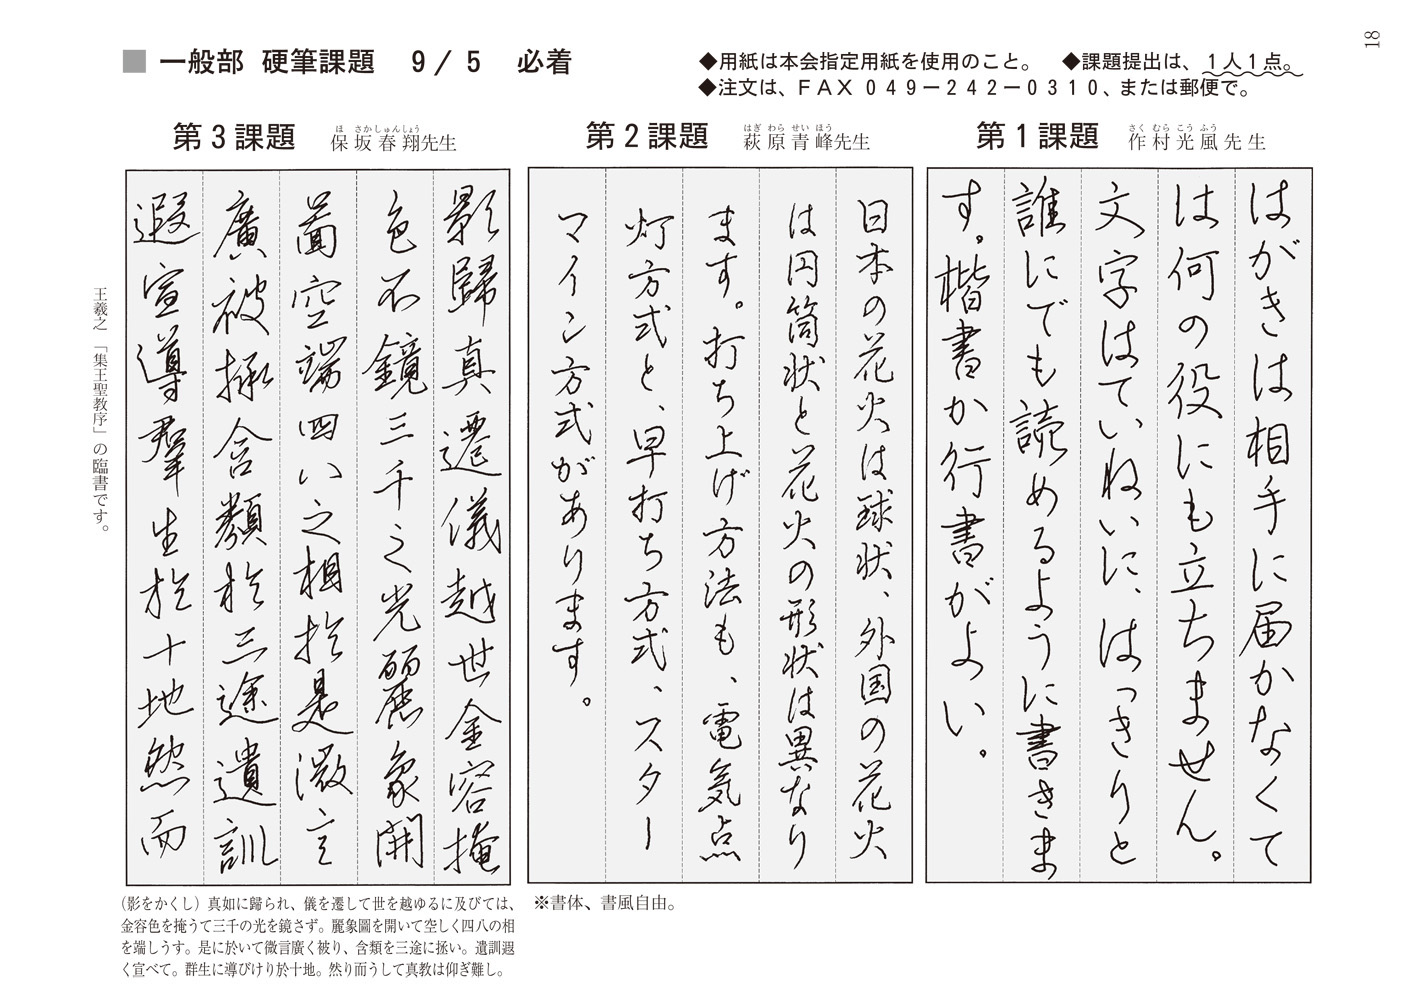 18
■ 一般部 硬筆課題 9/5 必着
◆用紙は本会指定用紙を使用のこと。 ◆課題提出は、1人1点。
◆注文は、FAX049−242−0310、または郵便で。
第1課題 作村光風先生
さくむらこうふう
はがきは相手に届かなくて
は何の役にも立ちません。
文字はていねいに、はっきりと
誰にでも読めるように書きま
す。楷書か行書がよい。
第2課題 萩原青峰先生
はぎわらせいほう
日本の花火は球状、外国の花火
は円筒状と花火の形状は異なり
ます。打ち上げ方法も、電気点
灯方式と、早打ち方式、スター
マイン方式があります。
※書体、書風自由。
第3課題 保坂春翔先生
ほさかしゅんしょう
影歸真遷儀越世金容掩
色不鏡三千之光麗象開
圖空端四八之相於是微言
廣被拯含類於三途遺訓
遐宣導群生於十地然而
王羲之「集王聖教序」の臨書です。
（影をかくし）真如に歸られ、儀を遷して世を越ゆるに及びては、
金容色を掩うて三千の光を鏡さず。麗象圖を開いて空しく四八の相
を端しうす。是に於いて微言廣く被り、含類を三途に拯い。遺訓遐
く宣べて。群生に導びけり於十地。然り而うして真教は仰ぎ難し。